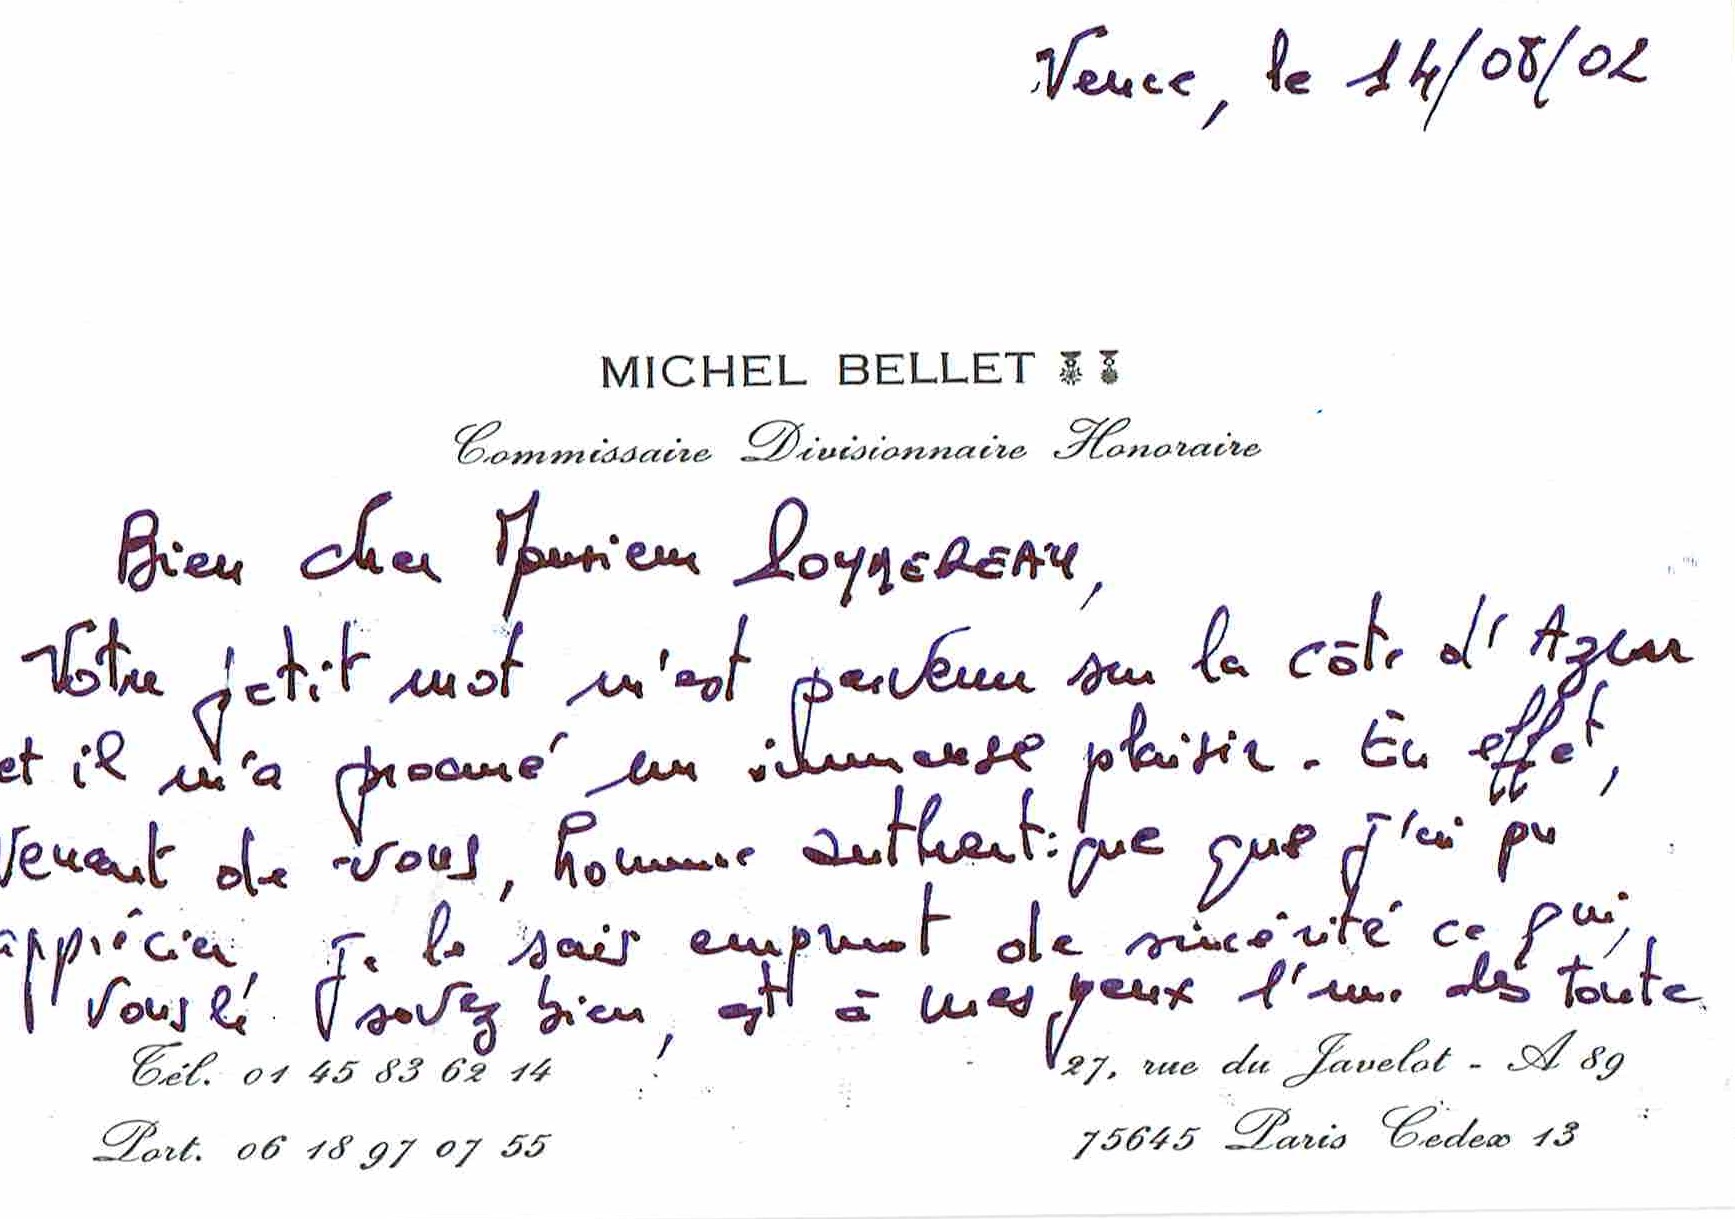 Vence, le 14/08/02
MICHEL BELLET
Commissaire Divisionnaire Honoraire
Bien cher Monsieur
Votre petit mot m'est parvenu sur la côte d'Azur
et il m'a procuré un immense plaisir. En effet,
Venant de vous, homme authentique que j'ai pu
apprécier, je le sais emprunt de sincérité ce qui,
Vous le savez bien, est à mes yeux l'une des toute
Tél. 01 45 83 62 14
27, rue du Javelot - A 89
Port. 06 18 97 07 55
75645 Paris Cedex 13